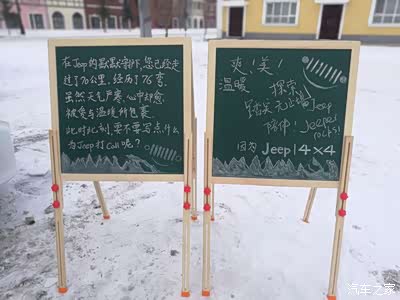 在Jeep的默默守护下,您已经走
过了70公里,经历了76弯
虽然天气严寒,心中却愈
被爱与温暖所包裹
此时此刻,要不要写点什么
为Jeep打Call呢?
爽!美!
温暖
探索
Jeep
陪伴!
因为 Jeep|4×4
汽车之家